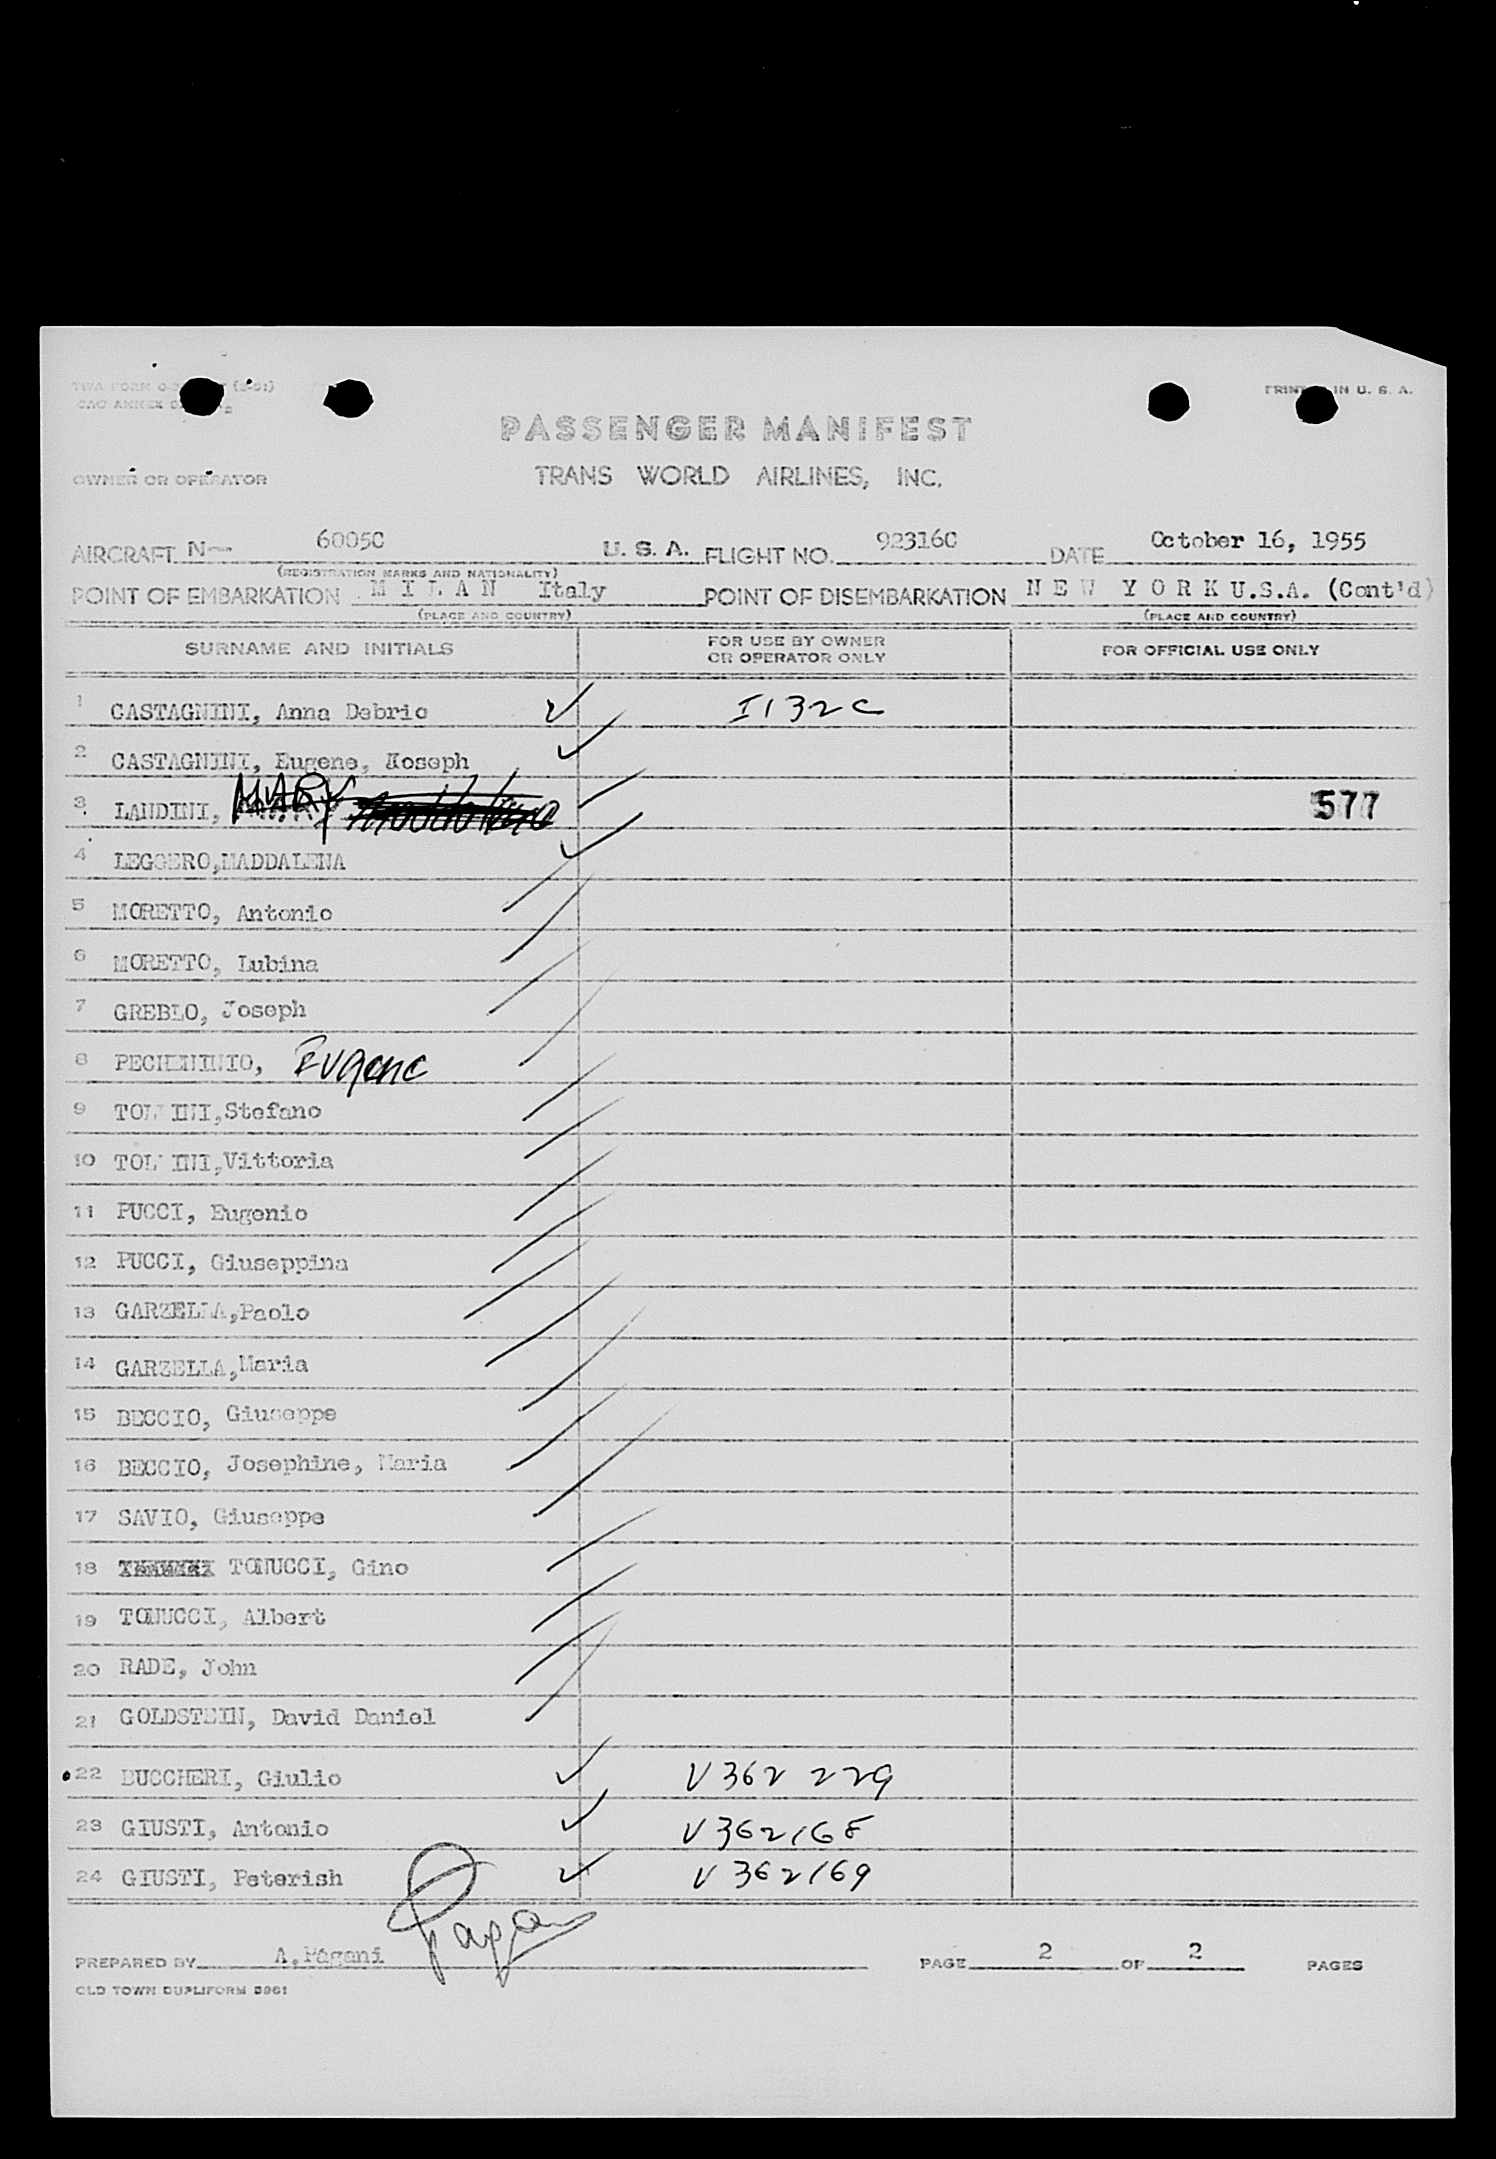 TWA FORM (3-51)
PRINTED IN U. S. A.
ICAO ANNEX
PASSENGER MANIFEST
OWNER OR OPERATOR
TRANS WORLD AIRLINES, INC.
AIRCRAFT N— 6005C U. S. A. FLIGHT NO. 923160 DATE October 16, 1955
(REGISTRATION MARKS AND NATIONALITY)
POINT OF EMBARKATION M I L A N Italy POINT OF DISEMBARKATION N E W Y O R K U.S.A. (Cont'd)
(PLACE AND COUNTRY) (PLACE AND COUNTRY)
SURNAME AND INITIALS FOR USE BY OWNER OR OPERATOR ONLY FOR OFFICIAL USE ONLY
1 CASTAGNINI, Anna Debric I132C
2 CASTAGNINI, Eugene, Koseph
3 LANDINI, MARY 577
4 LEGGERO,MADDALENA
5 MORETTO, Antonio
6 MORETTO, Lubina
7 GREBLO, Joseph
8 PECHENINIO, Eugene
9 Stefano
10 Vittoria
11 PUCCI, Eugenio
12 PUCCI, Giuseppina
13 GARZELLA,Paolo
14 GARZELLA,Maria
15 BECCIO, Giuseppe
16 BECCIO, Josephine, Maria
17 SAVIO, Giuseppe
18 TONUCCI, Gino
19 TONUCCI, Albert
20 RADE, John
21 GOLDSTEIN, David Daniel
22 BUCCHERI, Giulio V 362 229
23 GIUSTI, Antonio V 362168
24 GIUSTI, Peterish V 362169
Pagani
PREPARED BY A.Pagani PAGE 2 OF 2 PAGES
OLD TOWN DUPLIFORM 3961